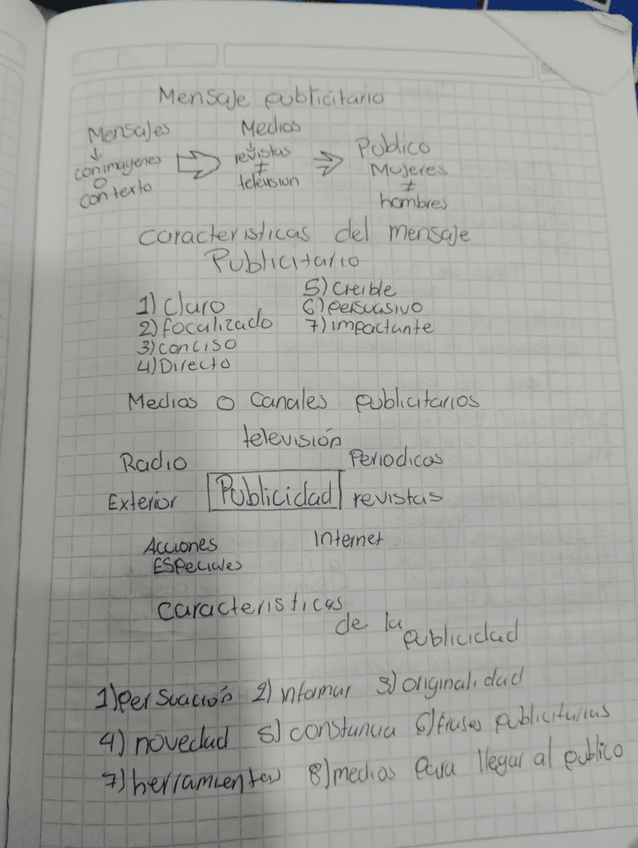 Mensaje publicitario
Mensajes
↓
con imagenes
o
con texto
⇒
Medios
↓
revistas
≠
television
⇒
Publico
Mujeres
≠
hombres
caracteristicas del mensaje
Publicitario
1) Claro
2) focalizado
3) conciso
4) Directo
5) Creible
6) persuasivo
7) impactante
Medios o Canales publicitarios
televisión
Radio
Periodicos
Exterior
Publicidad
revistas
Acciones
Especiales
Internet
caracteristicas
de la
publicidad
1) persuación 2) infomar 3) originalidad
4) novedad 5) constancia 6) frases publicitarias
7) herramientas 8) medios para llegar al publico